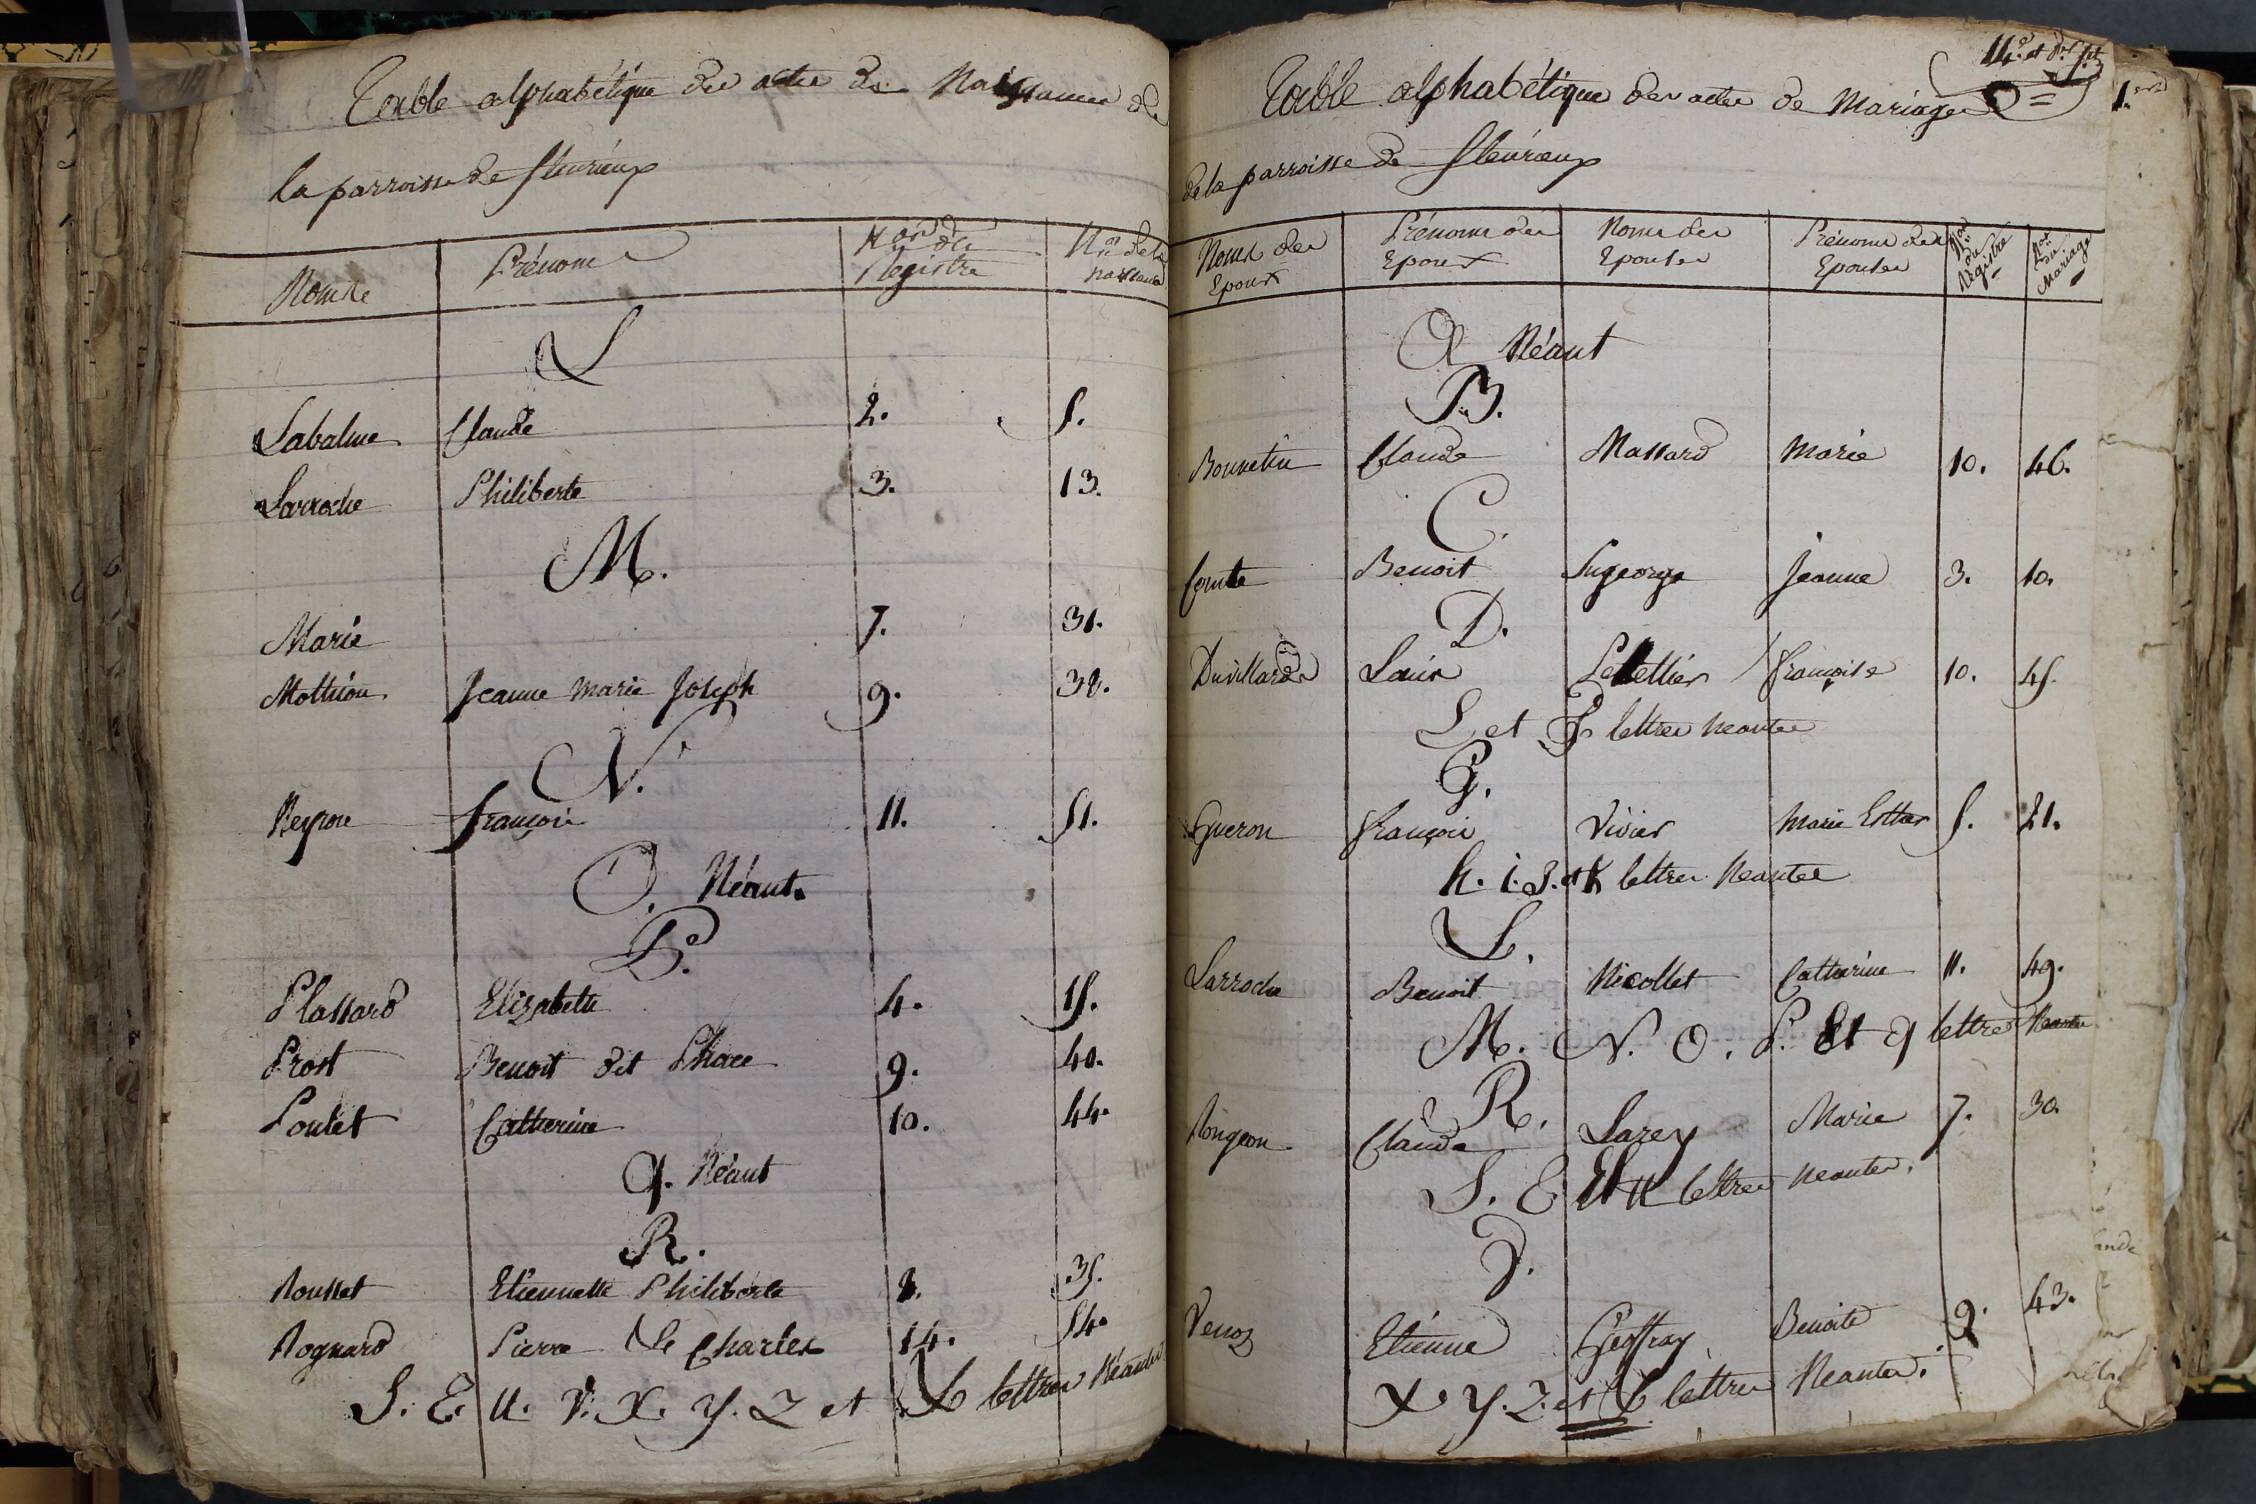 Table alphabétique des actes de Naissances de
la parroisse de fleurieux
Noms
Prénoms
Nos du Registre
Nos de la naissance
L
Labalme Claude 2. 5.
Larroche Philiberte 3. 13.
M.
Marie 7. 31.
Mottion Jeanne Marie Joseph 9. 38.
N.
Neyron françois 11. 51.
O. Néant.
P.
Plassard Elizabette 4. 15.
Prost Benoit dit Place 9. 40.
Poulet Catherine 10. 44.
q. Néant
R.
Rousset Etiennette Philiberte 8. 35.
Rognard Pierre de Charles 14. 54.
S. T. U. V. X. Y. Z et & lettres Néantes
14.e et der. f.t
Table alphabétique des actes de Mariages
de la parroisse de fleurieux
Noms des Epoux
Prénoms des Epoux
Noms des Epouses
Prénoms des Epouses
Nos du Registre
Nos du Mariage
A Néant
B.
Bonnetin Claude Massard Marie 10. 46.
C.
Comte Benoit Sugeorge Jeanne 3. 10.
D.
Duvillard Louis Pelletier françoise 10. 45.
E et F lettres neantes
G.
Gueron françois Vivier Marie Esther 5. 21.
h. i. J. et K lettres Neantes
L.
Larroche Benoit Nicollet Catherine 11. 49.
M. N. O. P. Et q lettres Neantes
R.
Rongeon Claude Larey Marie 7. 30.
S. T. Et U lettres neantes.
V.
Venoz Etienne Geoffray Benoite 9. 43.
X Y. Z. et & lettres Neantes.